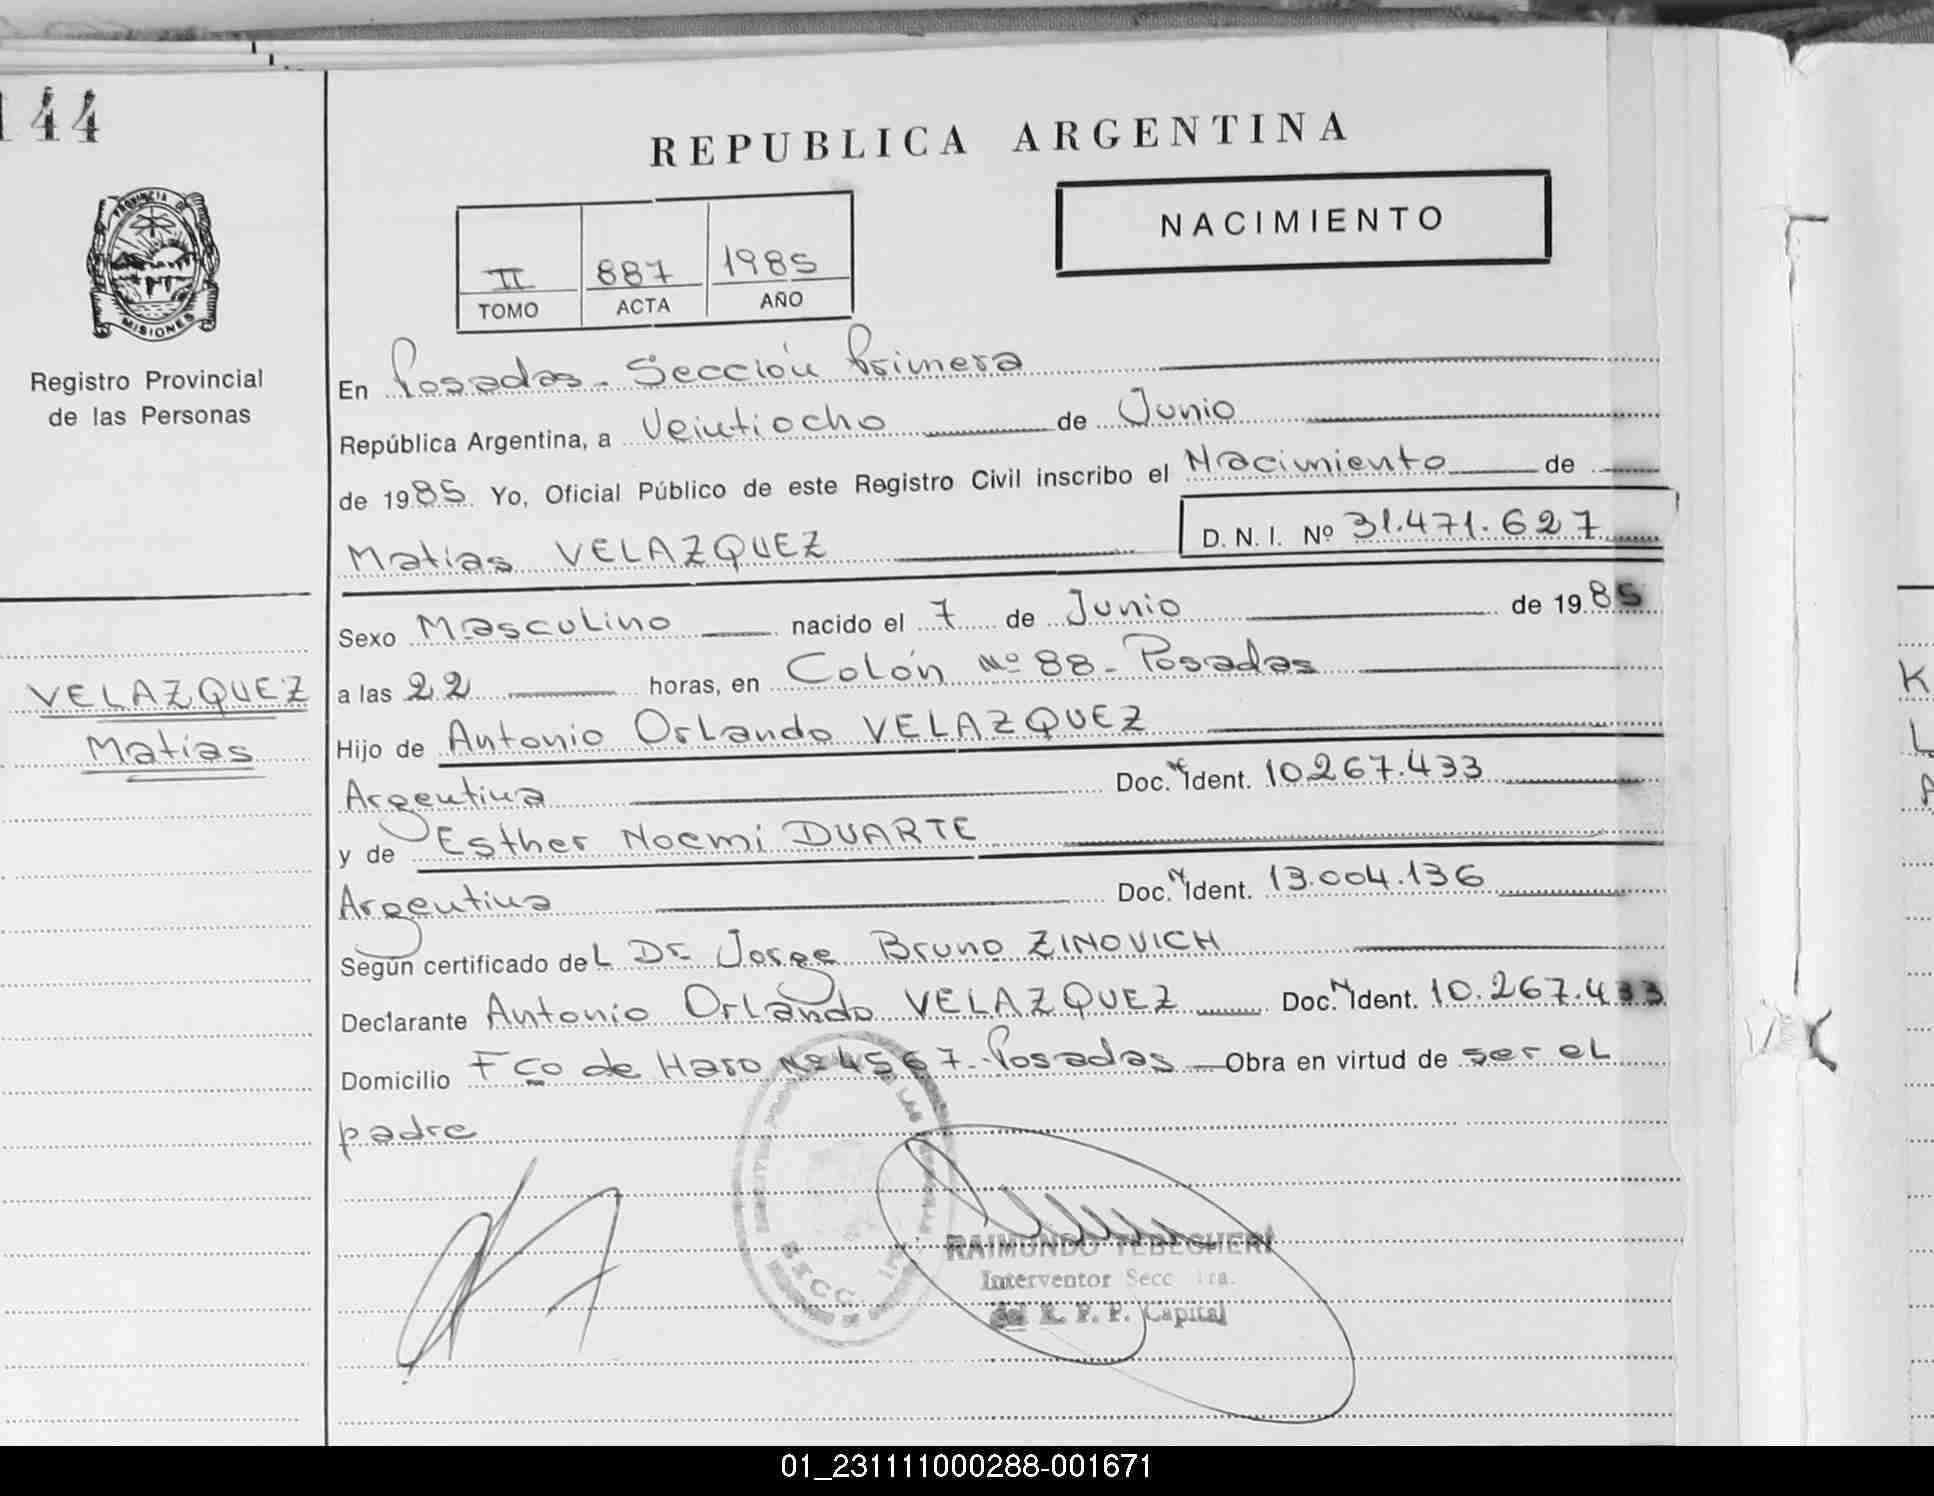 144
REPUBLICA ARGENTINA
PROVINCIA DE
MISIONES
Registro Provincial
de las Personas
II 887 1985
TOMO ACTA AÑO
NACIMIENTO
En Posadas - Sección Primera
República Argentina, a Veintiocho de Junio
de 1985 Yo, Oficial Público de este Registro Civil inscribo el Nacimiento de
Matias VELAZQUEZ D. N. I. Nº 31.471.627
Sexo Masculino nacido el 7 de Junio de 1985
VELAZQUEZ
Matias
a las 22 horas, en Colón Nº 88 - Posadas
Hijo de Antonio Orlando VELAZQUEZ
Argentina Doc. Ident. 10.267.433
y de Esther Noemi DUARTE
Argentina Doc. Ident. 13.004.136
Según certificado del Dr. Jorge Bruno ZINOVICH
Declarante Antonio Orlando VELAZQUEZ Doc. Ident. 10.267.433
Domicilio Fco de Haro Nº 4567 - Posadas Obra en virtud de ser el
padre
SECC. 1ra.
RAIMUNDO
Interventor Secc 1ra.
del R. P. P. Capital
K
L
A
01_231111000288-001671